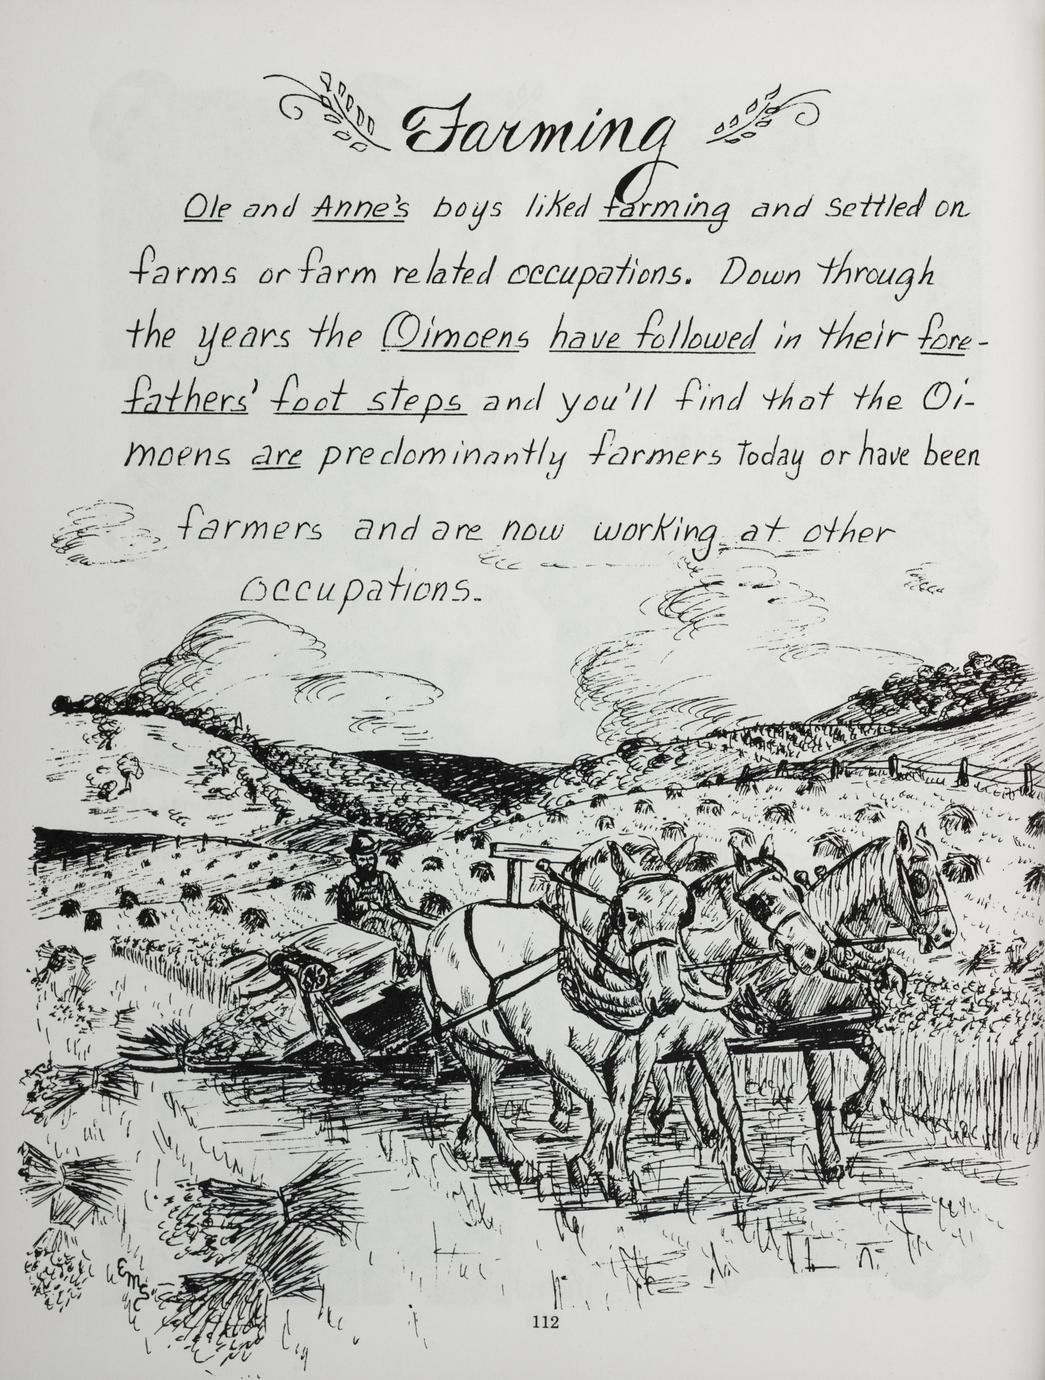 Farming
Ole and Anne's boys liked farming and settled on
farms or farm related occupations. Down through
the years the Oimoens have followed in their fore-
fathers' foot steps and you'll find that the Oi-
moens are predominantly farmers today or have been
farmers and are now working at other
occupations.
EMS
112